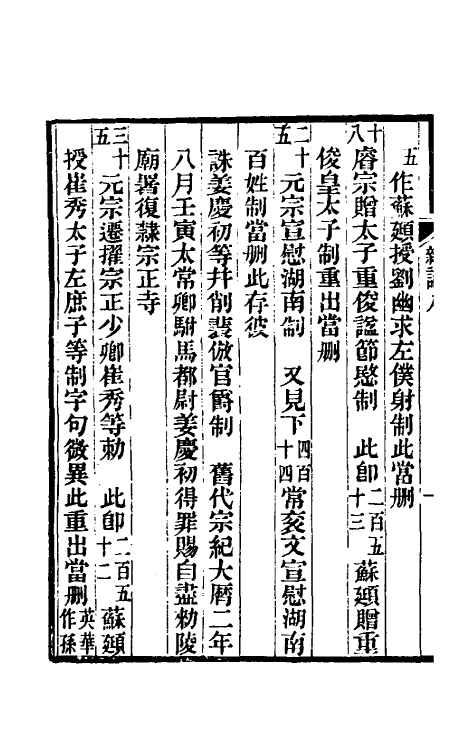 五作蘇頲授劉幽求左僕射制此當删
十八 睿宗贈太子重俊諡節愍制 此卽二百五十三 蘇頲贈重
俊皇太子制重出當删
二十五 元宗宣慰湖南制 又見下四百十四常袞文宣慰湖南
百姓制當删此存彼
誅姜慶初等幷削裴倣官爵制 舊代宗紀大曆二年
八月壬寅太常卿駙馬都尉姜慶初得罪賜自盡勅陵
廟署復隸宗正寺
三十五 元宗遷擢宗正少卿崔秀等勅 此卽二百五十二 蘇頲
授崔秀太子左庶子等制字句微異此重出當删英華作孫